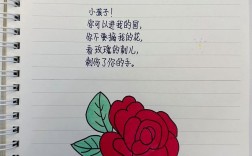 小孩子！
你可以进我的园，
你不要摘我的花，
看玫瑰的刺儿，
刺伤了你的手。